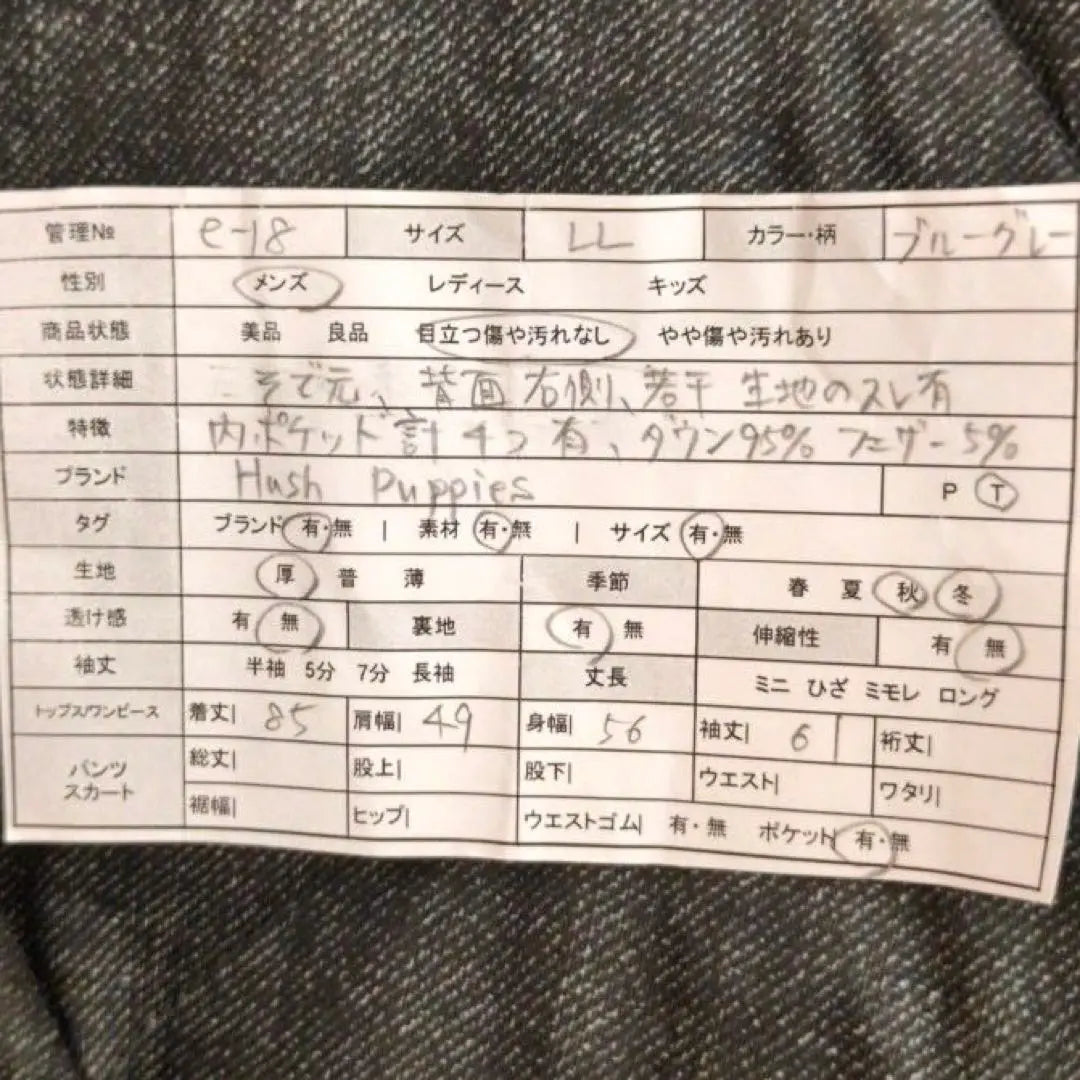 管理№ e-18 サイズ LL カラー・柄 ブルーグレー
性別 メンズ レディース キッズ
商品状態 美品 良品 目立つ傷や汚れなし やや傷や汚れあり
状態詳細 そで元、背面右側、若干生地のスレ有
特徴 内ポケット計4つ有、ダウン95% フェザー5%
ブランド Hush Puppies P T
タグ ブランド 有・無 | 素材 有・無 | サイズ 有・無
生地 厚 普 薄 季節 春 夏 秋 冬
透け感 有 無 裏地 有 無 伸縮性 有 無
袖丈 半袖 5分 7分 長袖 丈長 ミニ ひざ ミモレ ロング
トップス/ワンピース 着丈| 85 肩幅| 49 身幅| 56 袖丈| 61 裄丈|
パンツ スカート 総丈| 股上| 股下| ウエスト| ワタリ|
裾幅| ヒップ| ウエストゴム| 有・無 ポケット| 有・無